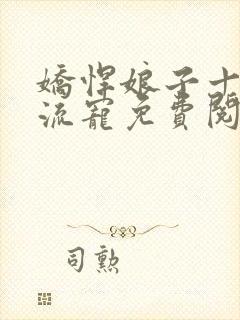 嬌悍娘子十
流寵免費閱
司勲